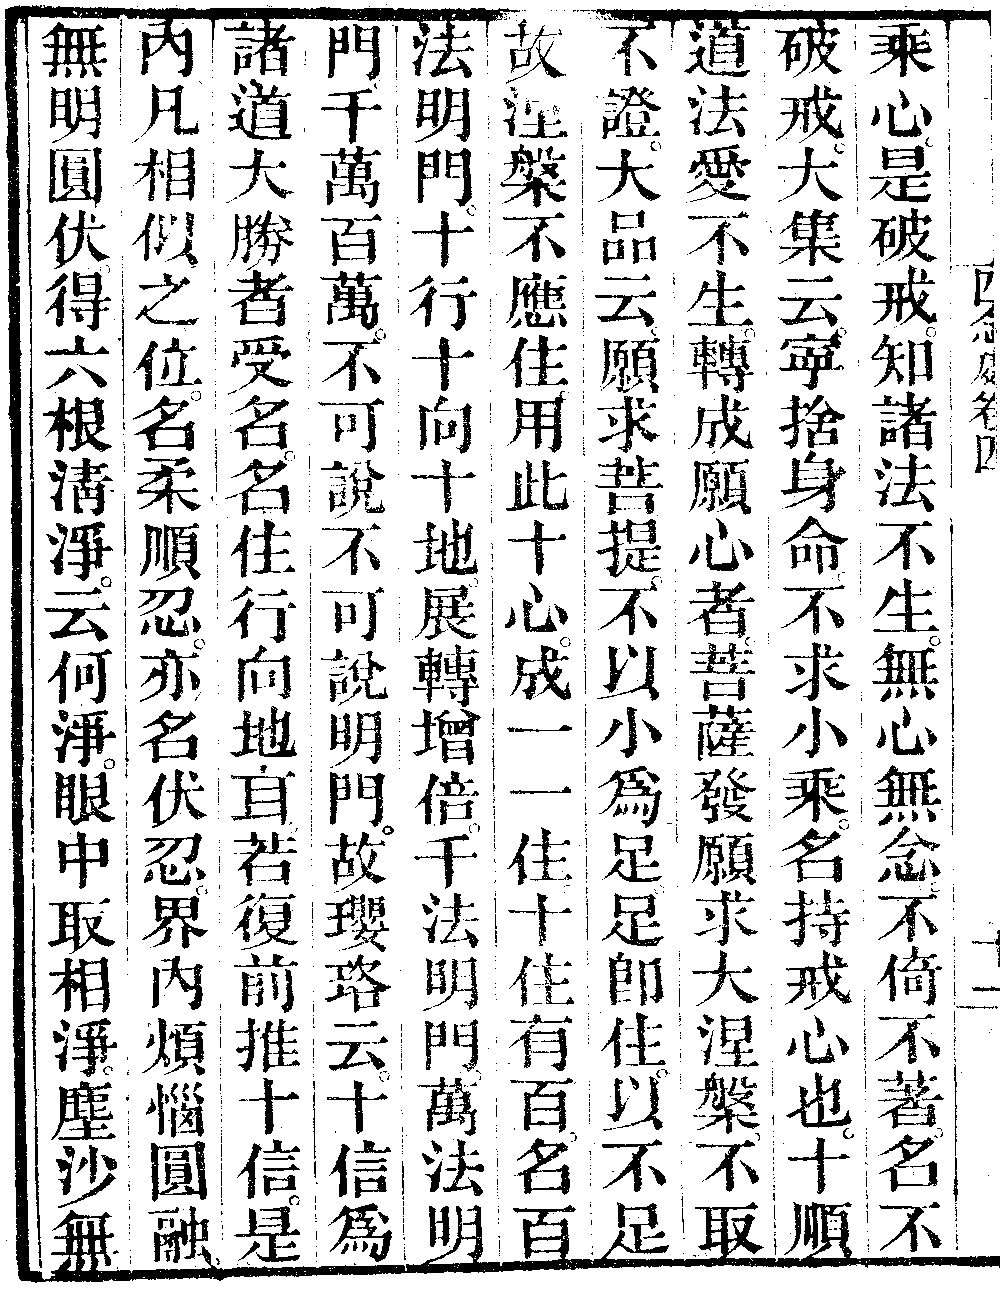 四念處卷四
十二
乘心。是破戒。知諸法不生。無心無念。不倚不著。名不
破戒。大集云。寧捨身命。不求小乘。名持戒心也。十順
道法愛不生。轉成願心者。菩薩發願求大涅槃。不取
不證。大品云。願求菩提。不以小爲足。足卽住。以不足
故涅槃不應住。用此十心。成一一住。十住有百。名百
法明門。十行十向十地。展轉增倍。千法明門。萬法明
門。千萬百萬。不可說不可說明門。故瓔珞云。十信爲
諸道大。勝者受名。名住行向地。豈若復前推十信。是
內凡相似之位。名柔順忍。亦名伏忍。界內煩惱圓融
無明圓伏。得六根淸淨。云何淨。眼中取相淨。塵沙無